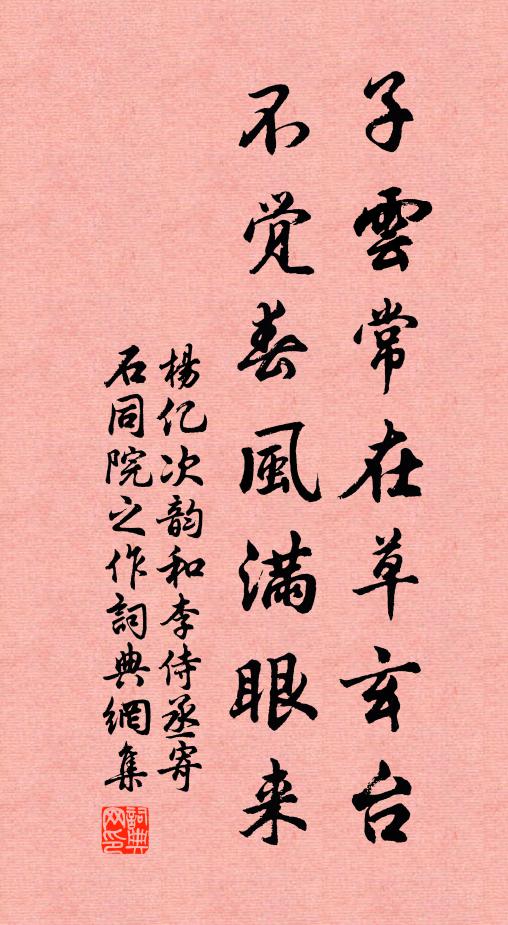 子雲常在草玄台
不覚春風満眼来
楊亿次韵和李侍丞寄
石同院之作詞典網集
詞典
网印